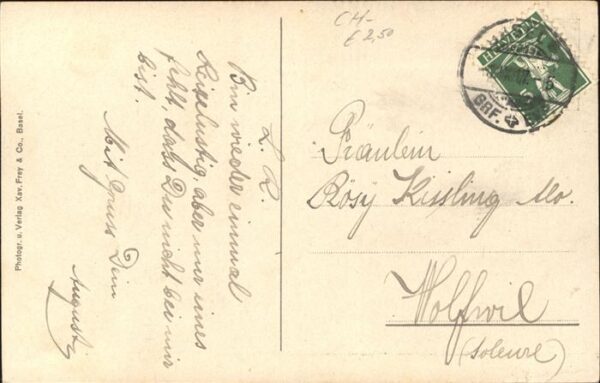 CH-
£ 2,50
L. R.
Bin wieder einmal
aber nur eines
fehlt, dass Du nicht bei mir
bist.
Mit Gruss Dein
August
Photogr. u. Verlag Xav. Frey & Co., Basel.
HELVETIA
5
BRF.
Fräulein
Rösy Kissling
Wolfwil
(Soleure)